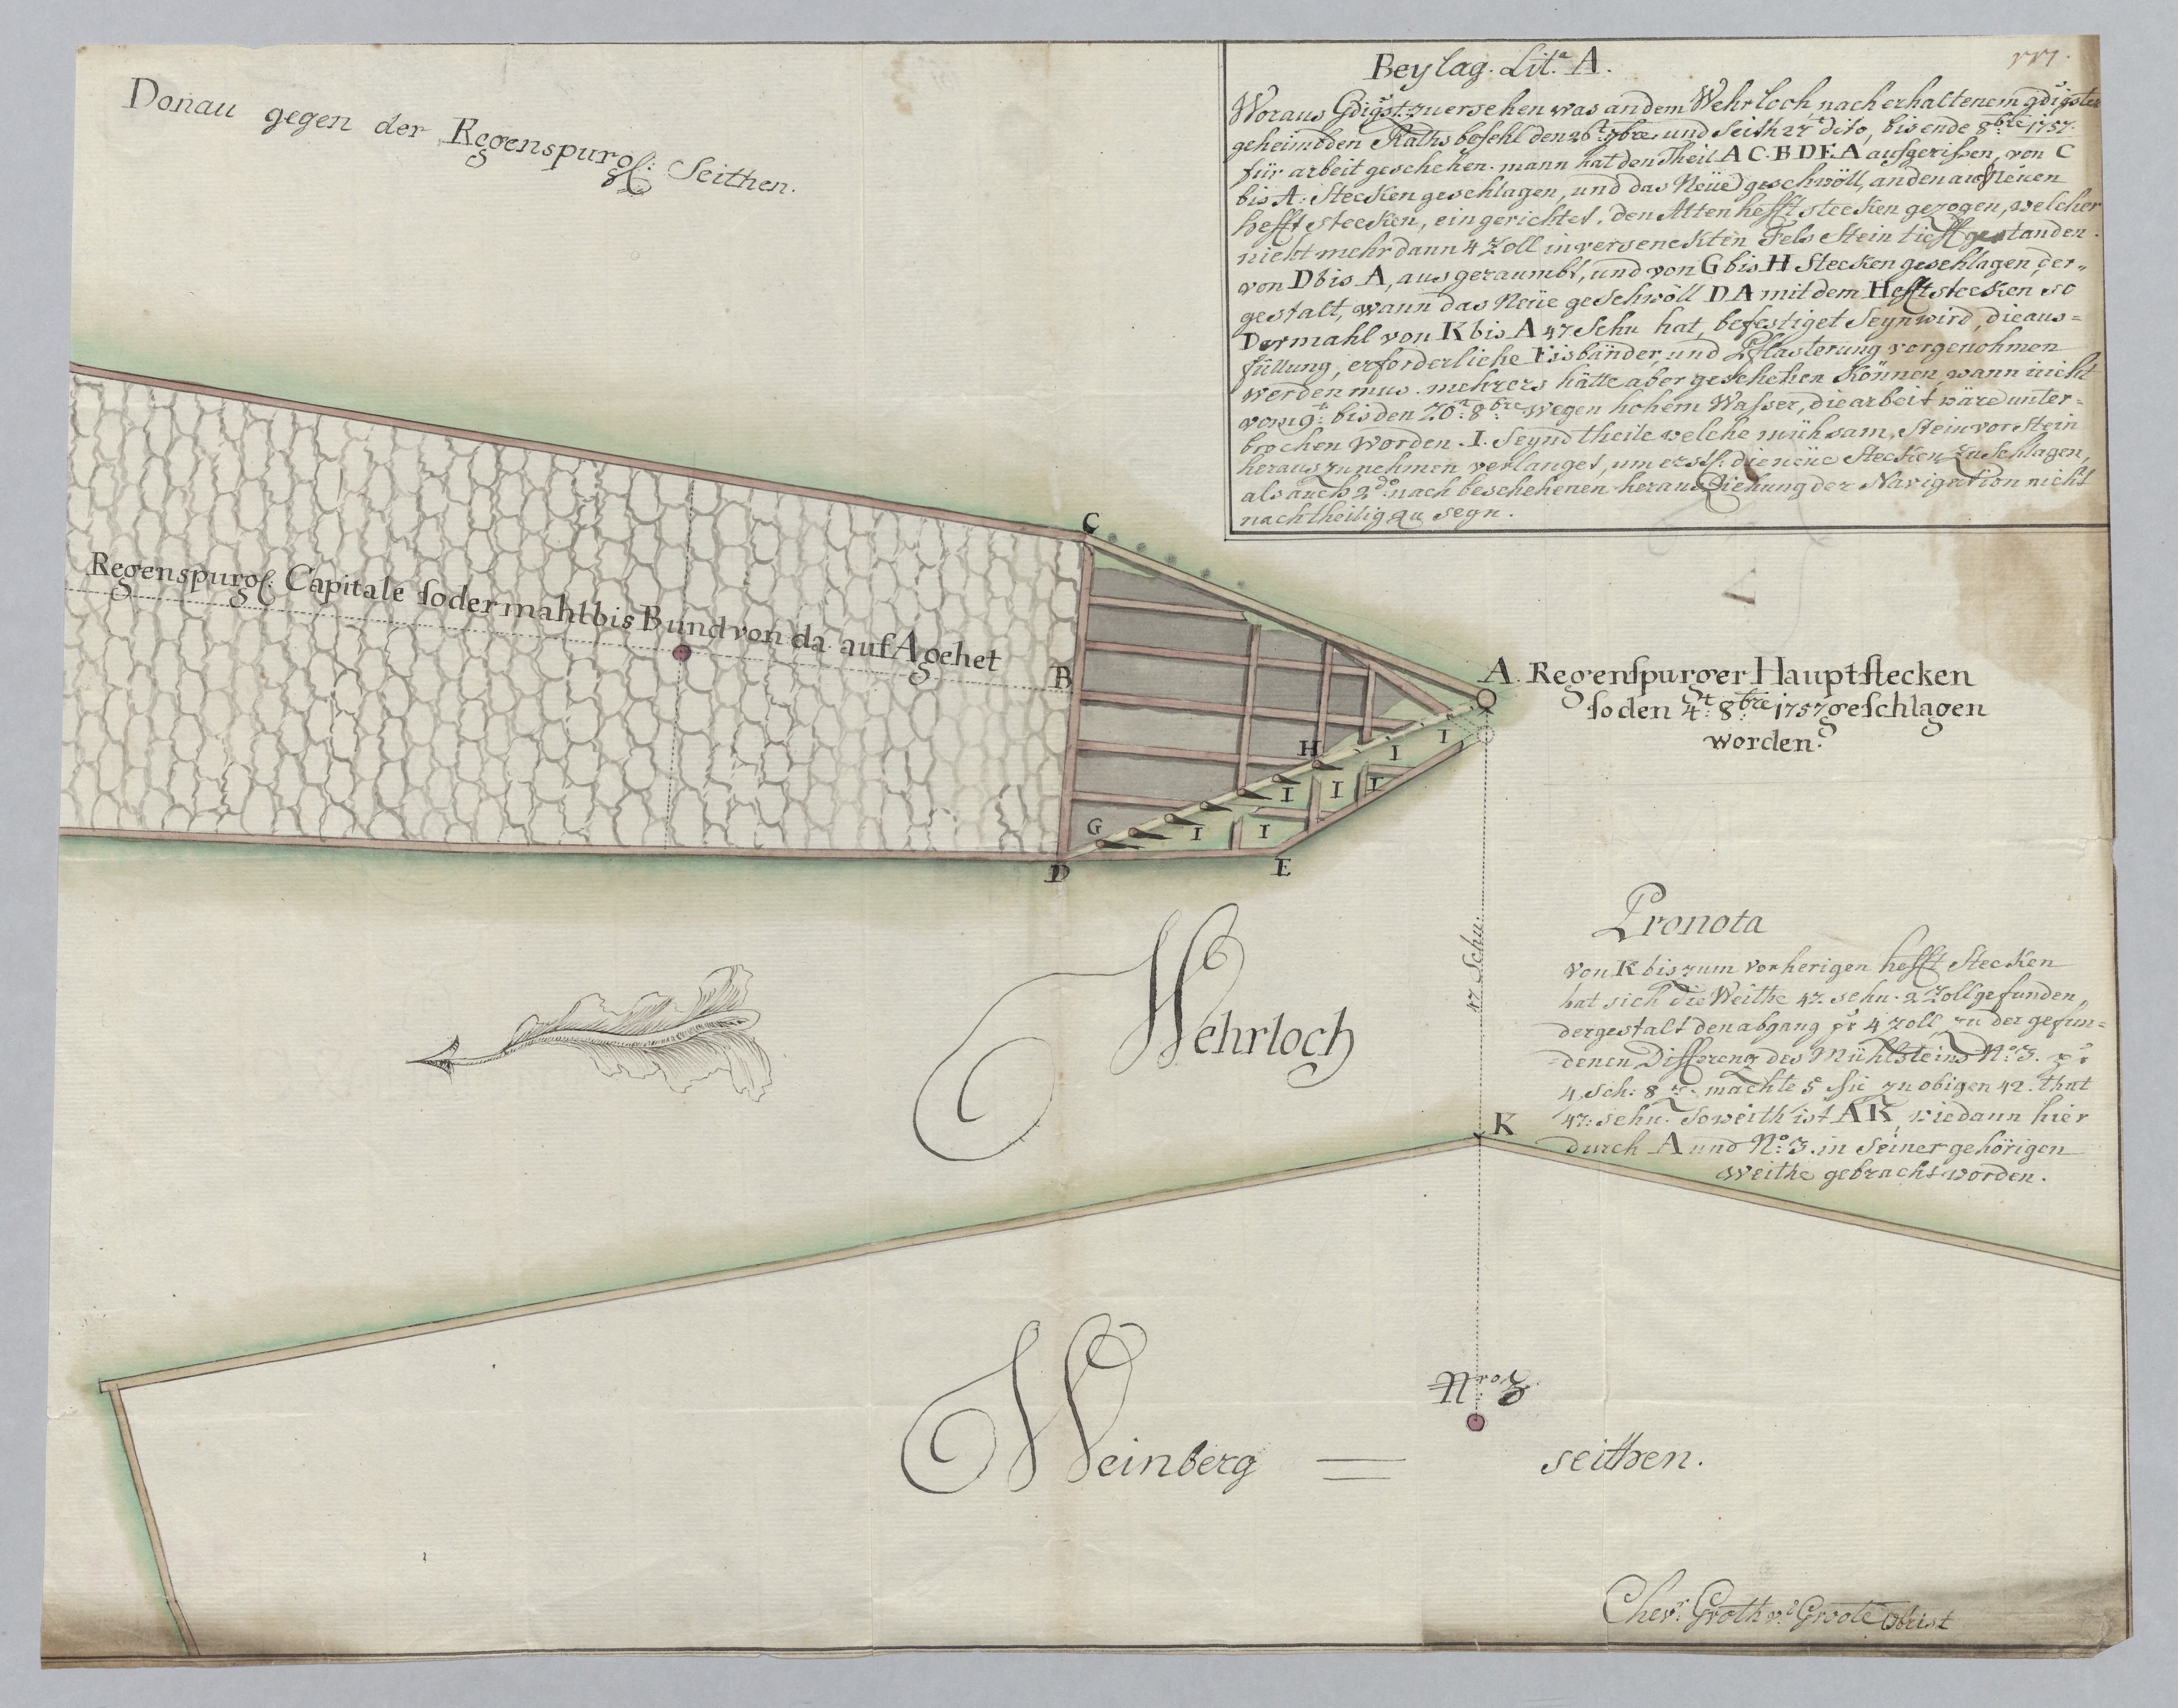 Donau gegen der Regenspurgl: Seithen.
Beylag. Lit.a A.
Woraus Gdigst zuersehen was an dem Wehrloch nach erhaltenem gdigster
geheimbden Raths befehl den 26t 7bre und seith 27t dito, bis ende 8bre 1757.
für arbeit geschehen. mann hat den Theil A C. B D E. A aufgerissen, von C
bis A: Stecken geschlagen, und das Neüe geschwöll, an den auch Neüen
hefft stecken, eingerichtet, den Alten hefft stecken gezogen, welcher
nicht mehr dann 4 Zoll in versenckten Fels Stein tieff gestanden.
von D bis A, ausgeraumbt, und von G bis H Stecken geschlagen, der„
gestalt, wann das Neüe geschwöll D A mit dem Hefft stecken so
Dermahl von K bis A 47 Schu hat, befestiget Seyn wird, die aus=
füllung, erforderliche Eisbänder, und Pflasterung vorgenohmen
werden mus. mehrers hätte aber geschehen können, wann nicht
vom 9t: bis den 20t: 8bre wegen hohem Wasser, die arbeit wäre unter=
brochen worden. I. Seynd theile welche mühsam, Stein vor Stein
heraus zu nehmen verlanget, um erstl: die neüe Stecken zu schlagen,
als auch 2do: nach beschehenen heraus ziehung der Navigation nicht
nachtheilig zu seyn.
C
Regenspurgl: Capitale so dermahl bis B und von da auf A gehet
B
A. Regenspurger Hauptstecken
so den 4t: 8bre 1757 geschlagen
worden.
H
I
I
I
I
I
G
I
I
D
E
47 Schu.
Pronota
von K bis zum vorherigen hefft Stecken
hat sich die Weithe 42 schu. 2 Zoll gefunden„
dergestalt den abgang pr 4 Zoll, zu der gefun=
=denen Differenz des Mühlsteins No: 3. pr
4 Sch: 8 z. machte 5 sie zu obigen 42. that
47: schu. Soweith ist A K, wie dann hier
durch A und No: 3. in seiner gehörigen
weithe gebracht worden.
Wehrloch
K
Nro: 3
Weinberg = seithen.
Chevr: Groth v: Groote Obrist